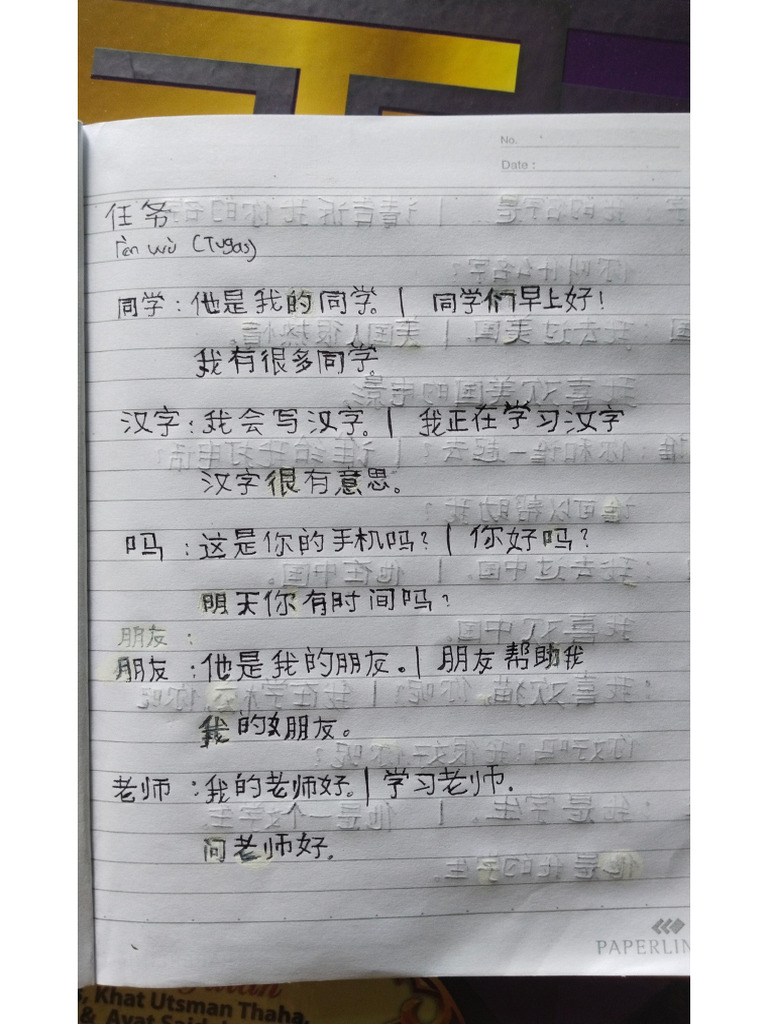 No.
Date :
任务
rèn wù (Tugas)
同学 : 他是我的同学。 | 同学们早上好!
我有很多同学。
汉字 : 我会写汉字。 | 我正在学习汉字
汉字很有意思。
吗 : 这是你的手机吗? | 你好吗?
明天你有时间吗?
朋友 :
朋友 : 他是我的朋友。 | 朋友帮助我
我的朋友。
老师 : 我的老师好。 | 学习老师.
问老师好.
PAPERLIN
, Khat Utsman Thaha,